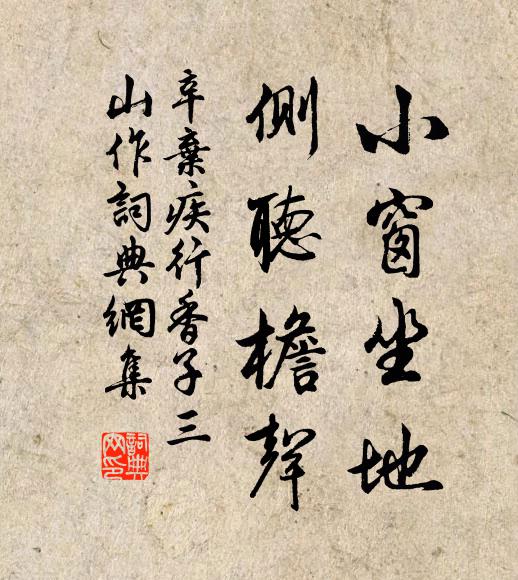 小窗坐地
側聽檐聲
辛棄疾行香子三
山作詞典網集
詞典網印